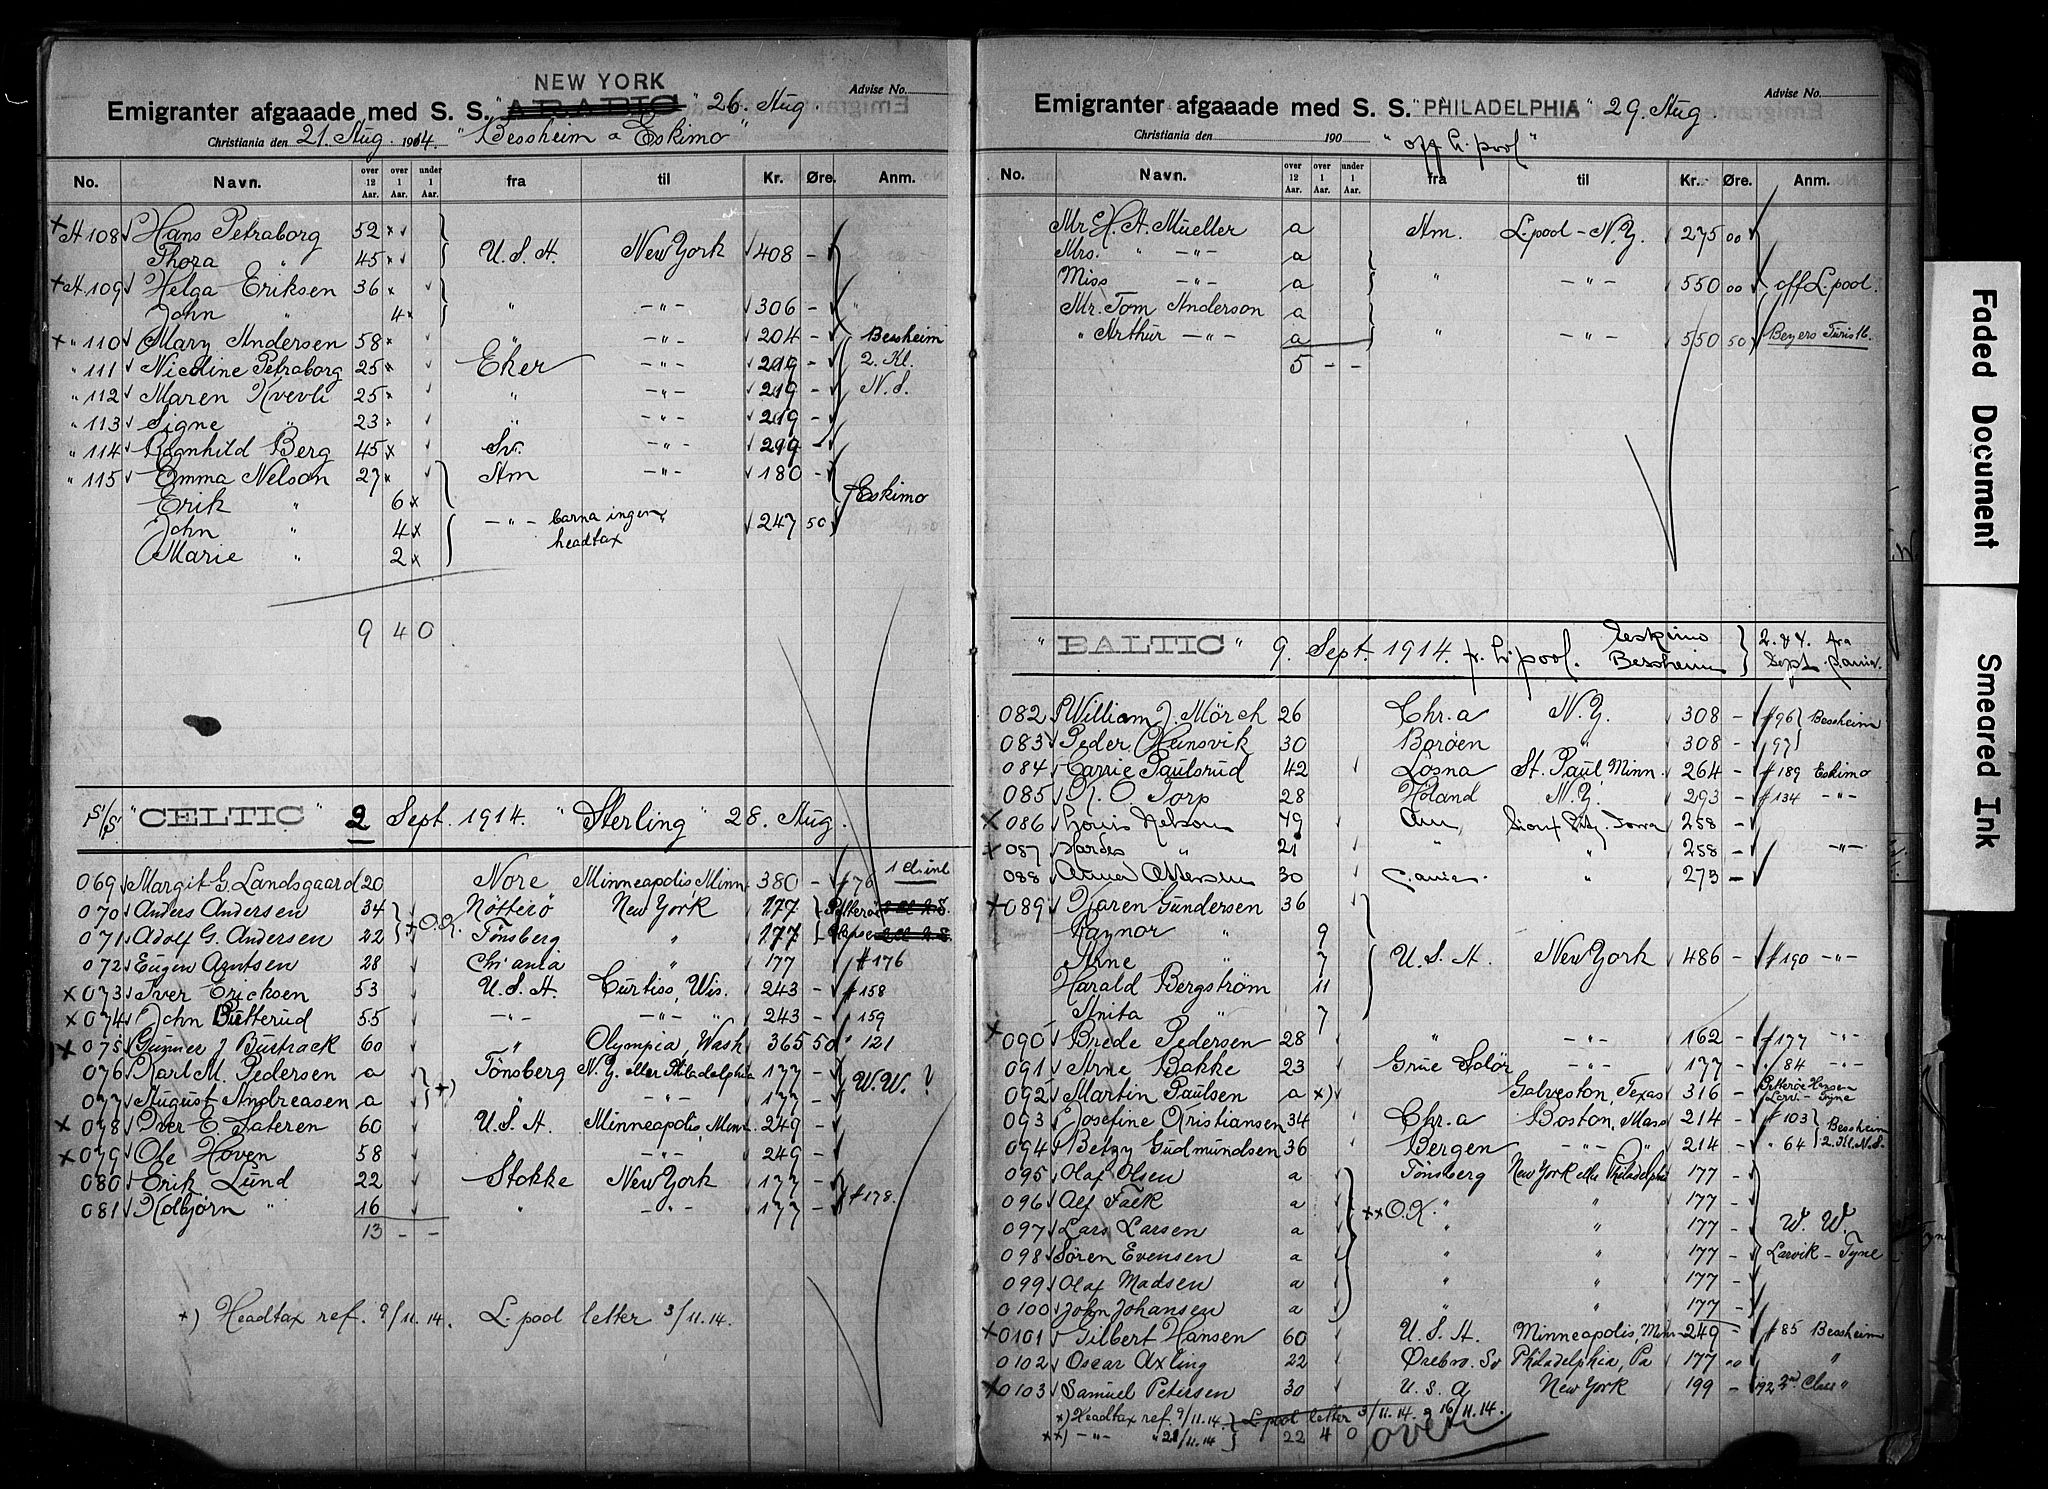 NEW YORK
Advise No.
Emigranter afgaaade med S. S. "ARABIC" 26. Aug
Christiania den 21. Aug. 1914. "Bessheim a Eskimo"
No. Navn. over 12 Aar. over 1 Aar. under 1 Aar. fra til Kr. Øre. Anm.
A 108 Hans Petraborg 52
Thora " 45 U.S.A. New York 408 -
A. 109 Helga Eriksen 36
John " 4 " -"- 306 - "
" 110 Mary Andersen 58 " -"- 204 - Bessheim
" 111 Nicoline Petraborg 25 Eker -"- 219 - 2. Kl.
" 112 Maren Kvevli 25 " -"- 219 - N.S.
" 113 Signe " 23 " -"- 219 -
" 114 Ragnhild Berg 45 Sv. -"- 299 -
" 115 Emma Nelson 27 Am -"- 180 -
Erik " 6 Eskimo
John " 4 -"- barna ingen 247 50
Marie " 2 headtax
9 4 0
S/S. "CELTIC" 2 Sept. 1914. "Sterling" 28. Aug.
1 d. inl
069 Margit G. Landsgaard 20 Nore Minneapolis, Minn 380 - # 76
070 Anders Andersen 34 O.K. Nötterö New York 177
071 Adolf G. Andersen 22 Tönsberg " 177
072 Eugen Arntsen 28 Chr'ania " 177 # 176
073 Iver Ericksen 53 U.S.A. Curtiss, Wis. 243 - # 158
074 John Butterud 55 -"- -"- " 243 - " 159
075 Gunner J Burtrack 60 " Olympia, Wash 365 50 " 121
076 Karl M. Pedersen a x) Tönsberg N.Y. eller Philadelphia 177 - W.W. ?
077 August Andreasen a " -"- 177 -
078 Iver E. Sateren 60 U.S.A. Minneapolis, Minn 249 -
079 Ole Hoven 58 -"- 249 -
080 Erik Lund 22 Stokke New York 177 -
081 Kolbjörn " 16 " -"- 177 - # 178.
13 - -
x) Headtax ref. 9/11.14. L.pool letter 3/11.14.
Advise No.
Emigranter afgaaade med S. S. "PHILADELPHIA" 29. Aug.
Christiania den 190 "off L.pool"
No. Navn. over 12 Aar. over 1 Aar. under 1 Aar. fra til Kr. Øre. Anm.
Mr. H. A. Mueller a Am. L.pool - N.Y. 275 00
Mrs. " -"- a
Miss -"- a " -"- 550 00 off L.pool.
Mr. Tom Anderson a
" Arthur -"- a " -"- 550 50 Beyers Turistb.
5 - -
"BALTIC" 9. Sept. 1914. fr. L'pool. Eskimo 2. & 4. fra
Bessheim Sept. C.ania.
082 William J. Mörch 26 Chr.a N.Y. 308 - # 96 Bessheim
083 Peder Heinsvik 30 Boröen " 308 - " 97
084 Carrie Paulsrud 42 Losna St. Paul, Minn. 264 - # 189 Eskimo
085 K. O. Torp 28 Höland N.Y. 293 - # 134 -"-
086 Louis Nelson 49 Am, Sioux City, Iowa 258 -
087 " 21 " " 258 - -"-
088 Anna Ottersen 30 C.ania. " 273 -
089 Karen Gundersen 36
Raynor " 9
Arne " 7 U.S.A. New York 486 - # 190 -"-
Harald Bergström 11
Anita " 7
090 Brede Pedersen 28 " -"- 162 - # 177 -"-
091 Arne Bakke 23 Grue Solör -"- 177 - " 84 -"-
092 Martin Paulsen a x) Galveston, Texas 316 - Petteröe Hansen Larv - Tyne
093 Josefine Kristiansen 34 Chr.a Boston, Mass 214 - # 103 Bessheim
094 Betzy Gudmundsen 36 Bergen -"- " 214 - " 64 2. Kl. N.S.
095 Olaf Olsen a Tönsberg New York eller Philadelphia 177 -
096 Alf Falk a xx O.K. " " 177 -
097 Lars Larsen a " " 177 - W. W.
098 Sören Evensen a " " 177 - Larvik - Tyne
099 Olaf Madsen a " " 177 -
0100 John Johansen a " " 177 -
0101 Gilbert Hansen 60 U.S.A. Minneapolis, Minn 249 - # 85 Bessheim
0102 Oscar Axling 22 Örebro. Sv Philadelphia, Pa 177 00 "
0103 Samuel Petersen 30 U.S.A New York 199 - 192 2nd Class "
x) Headtax ref. 9/11.14. L.pool letter 3/11.14. 16/11.14.
xx) -"- " 21/11.14 22 4 0 over
Faded Document
Smeared Ink